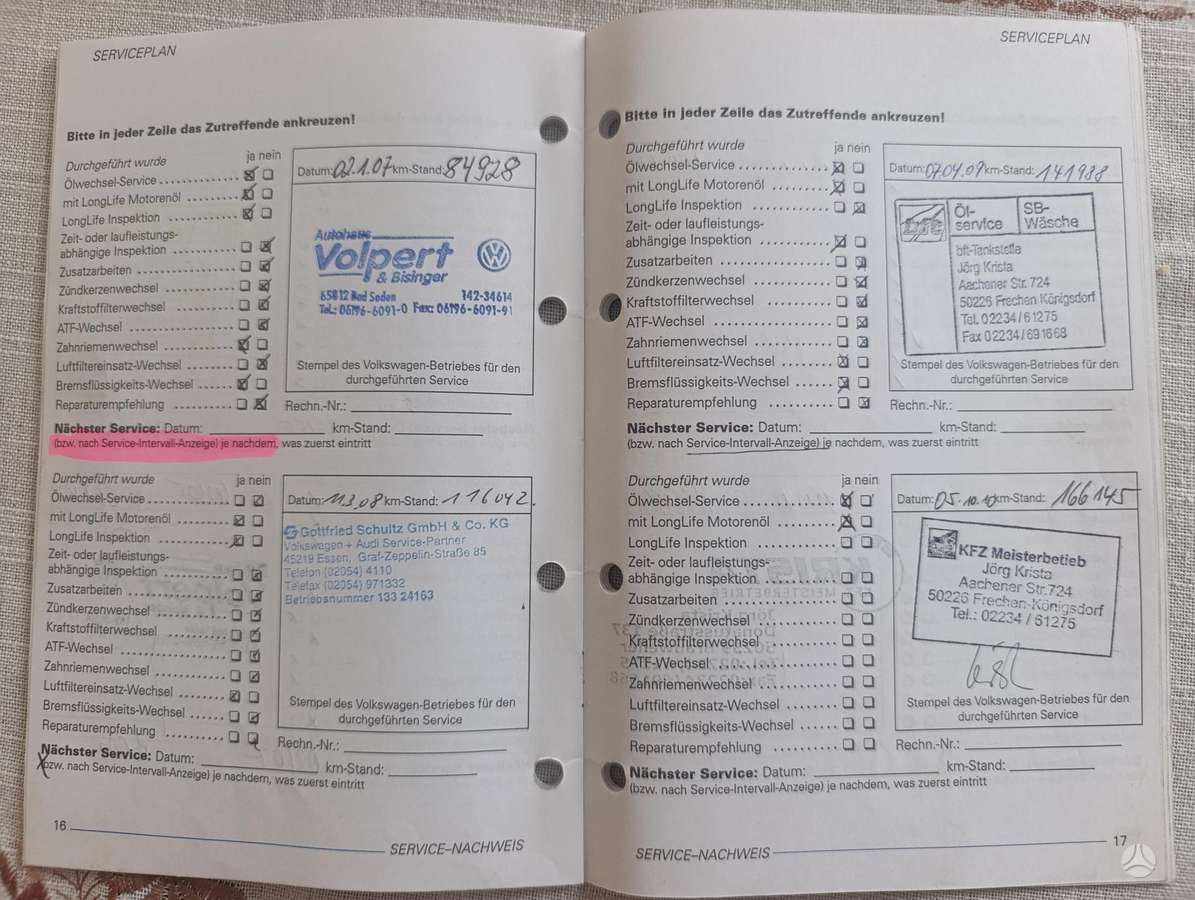 SERVICEPLAN
Bitte in jeder Zeile das Zutreffende ankreuzen!
Durchgeführt wurde ja nein
Ölwechsel-Service
mit LongLife Motorenöl
LongLife Inspektion
Zeit- oder laufleistungs-
abhängige Inspektion
Zusatzarbeiten
Zündkerzenwechsel
Kraftstoffilterwechsel
ATF-Wechsel
Zahnriemenwechsel
Luftfiltereinsatz-Wechsel
Bremsflüssigkeits-Wechsel
Reparaturempfehlung
Datum: 02.1.07 km-Stand: 84928
Autohaus
Volpert
& Bisinger
65812 Bad Soden 142-34614
Tel.: 06196-6091-0 Fax: 06196-6091-91
Stempel des Volkswagen-Betriebes für den
durchgeführten Service
Rechn.-Nr.:
Nächster Service: Datum: km-Stand:
(bzw. nach Service-Intervall-Anzeige) je nachdem, was zuerst eintritt
Durchgeführt wurde ja nein
Ölwechsel-Service
mit LongLife Motorenöl
LongLife Inspektion
Zeit- oder laufleistungs-
abhängige Inspektion
Zusatzarbeiten
Zündkerzenwechsel
Kraftstoffilterwechsel
ATF-Wechsel
Zahnriemenwechsel
Luftfiltereinsatz-Wechsel
Bremsflüssigkeits-Wechsel
Reparaturempfehlung
Datum: 11.3.08 km-Stand: 116042.
Gottfried Schultz GmbH & Co. KG
Volkswagen + Audi Service-Partner
45219 Essen, Graf-Zeppelin-Straße 85
Telefon (02054) 4110
Telefax (02054) 971332
Betriebsnummer 133 24163
Stempel des Volkswagen-Betriebes für den
durchgeführten Service
Rechn.-Nr.:
Nächster Service: Datum: km-Stand:
(bzw. nach Service-Intervall-Anzeige) je nachdem, was zuerst eintritt
16 SERVICE–NACHWEIS
SERVICEPLAN
Bitte in jeder Zeile das Zutreffende ankreuzen!
Durchgeführt wurde ja nein
Ölwechsel-Service
mit LongLife Motorenöl
LongLife Inspektion
Zeit- oder laufleistungs-
abhängige Inspektion
Zusatzarbeiten
Zündkerzenwechsel
Kraftstoffilterwechsel
ATF-Wechsel
Zahnriemenwechsel
Luftfiltereinsatz-Wechsel
Bremsflüssigkeits-Wechsel
Reparaturempfehlung
Datum: 07.04.09 km-Stand: 141988
bft
Öl-
service
SB-
Wäsche
bft-Tankstelle
Jörg Krista
Aachener Str. 724
50226 Frechen Königsdorf
Tel. 02234/61275
Fax 02234/691668
Stempel des Volkswagen-Betriebes für den
durchgeführten Service
Rechn.-Nr.:
Nächster Service: Datum: km-Stand:
(bzw. nach Service-Intervall-Anzeige) je nachdem, was zuerst eintritt
Durchgeführt wurde ja nein
Ölwechsel-Service
mit LongLife Motorenöl
LongLife Inspektion
Zeit- oder laufleistungs-
abhängige Inspektion
Zusatzarbeiten
Zündkerzenwechsel
Kraftstoffilterwechsel
ATF-Wechsel
Zahnriemenwechsel
Luftfiltereinsatz-Wechsel
Bremsflüssigkeits-Wechsel
Reparaturempfehlung
Datum: 05.10.10 km-Stand: 166145
KFZ Meisterbetrieb
Jörg Krista
Aachener Str.724
50226 Frechen-Königsdorf
Tel.: 02234/61275
Stempel des Volkswagen-Betriebes für den
durchgeführten Service
Rechn.-Nr.:
Nächster Service: Datum: km-Stand:
(bzw. nach Service-Intervall-Anzeige) je nachdem, was zuerst eintritt
SERVICE–NACHWEIS 17